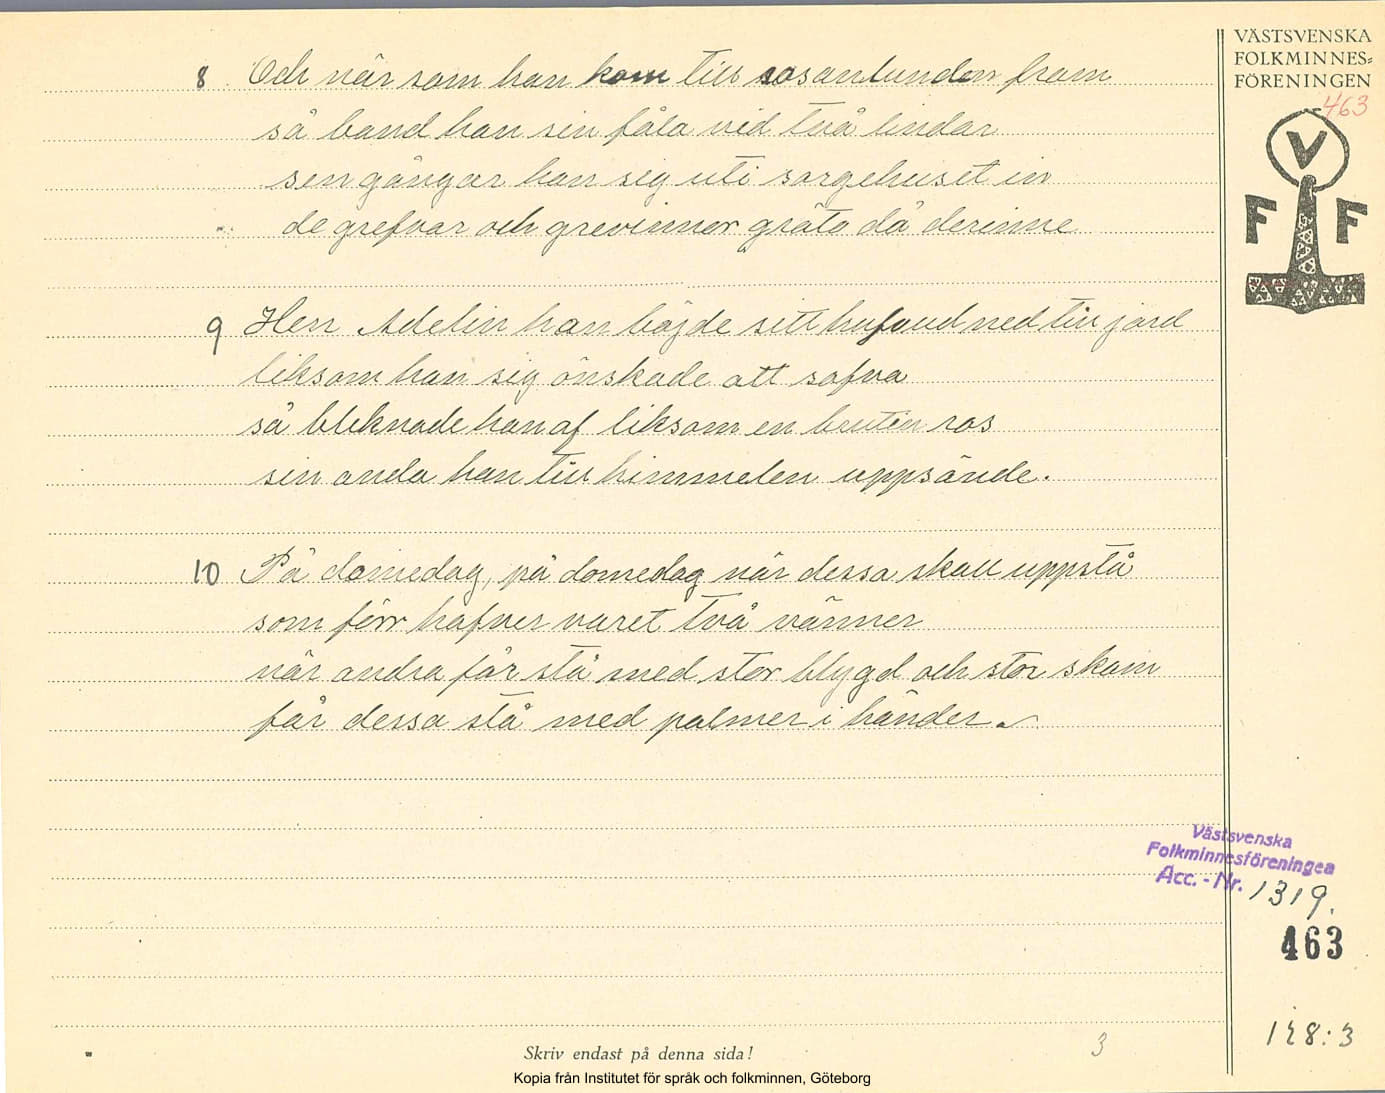 VÄSTSVENSKA
FOLKMINNES=
FÖRENINGEN
463
V
F F
8 Och när som han kom till rosanlunden fram
så band han sin fåla vid två lindar
sen gångar han sig uti sorgehuset in
de grefvar och grevinnor gräto då derinne
9 Herr Adelin han böjde sitt hufvud ned till jord
liksom han sig önskade att sofva
så bleknade han af liksom en bruten ros
sin anda han till himmelen uppsände.
10 På domedag, på domedag när dessa skall uppstå
som förr hafver varet två vänner
när andra får stå med stor blygd och stor skam
får dessa stå med palmer i händer.
Västsvenska
Folkminnesföreningen
Acc. - Nr. 1319.
463
128:3
3
Skriv endast på denna sida!
Kopia från Institutet för språk och folkminnen, Göteborg